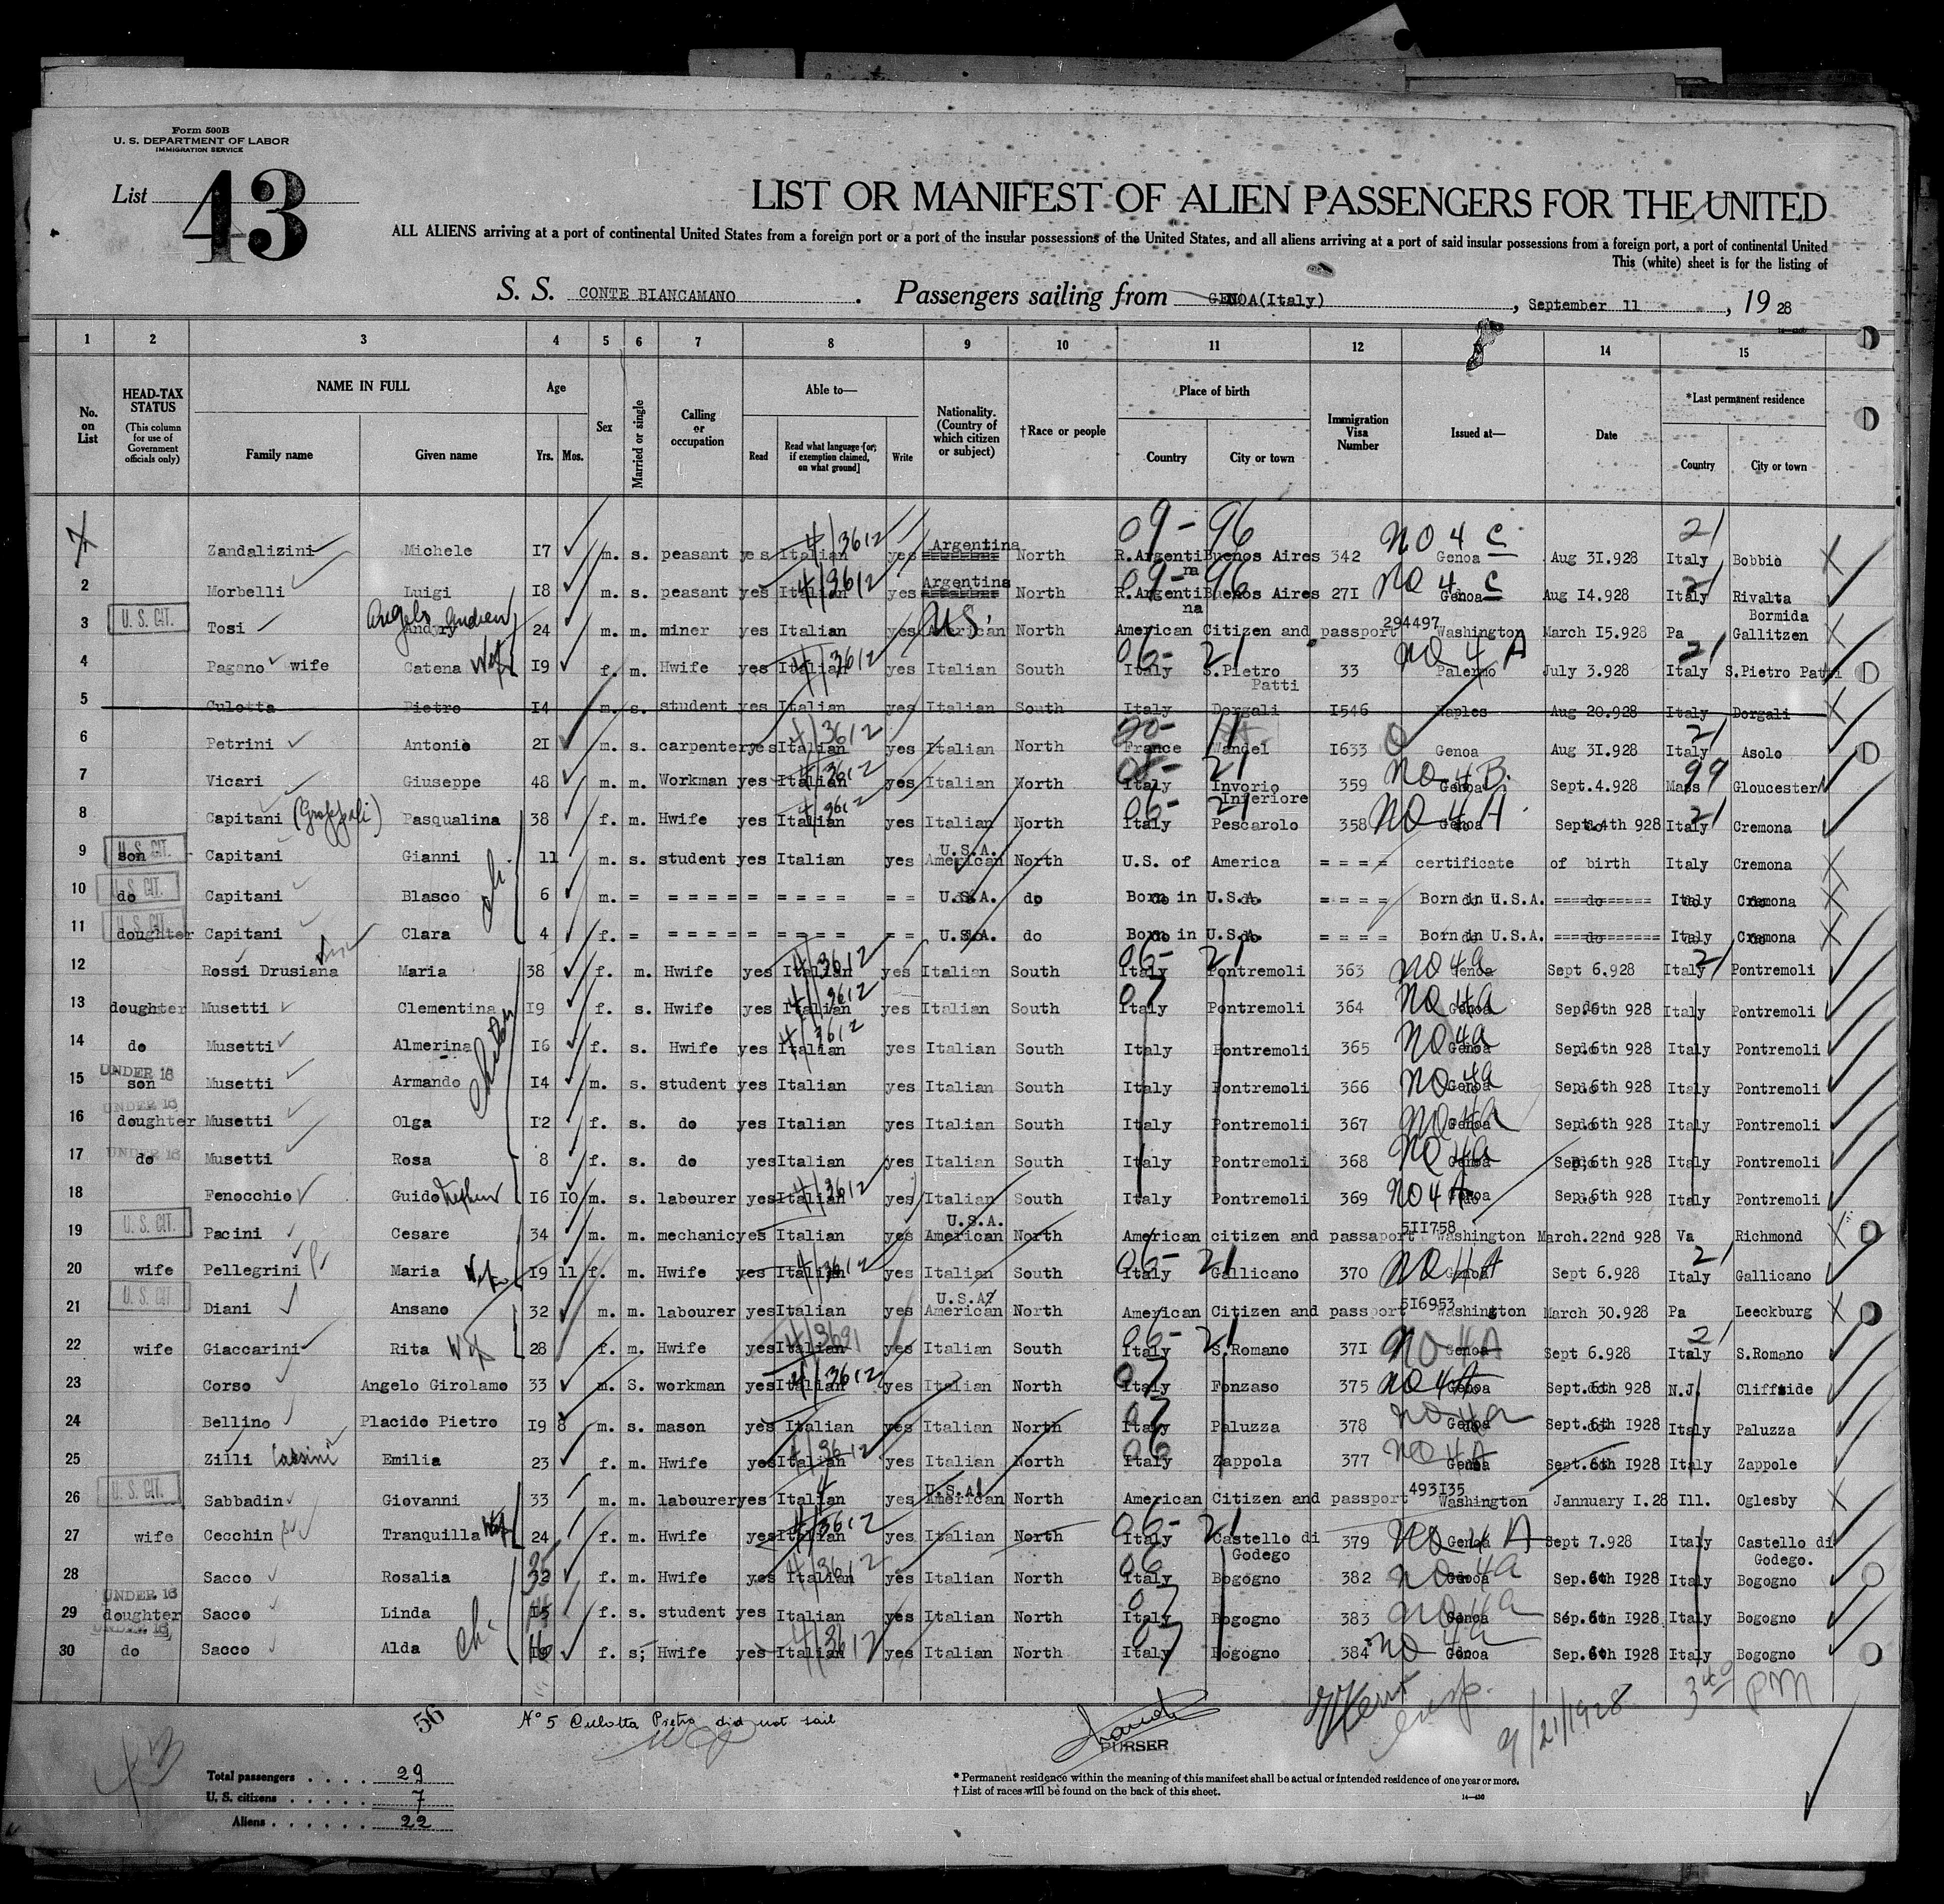 Form 500B
U. S. DEPARTMENT OF LABOR
IMMIGRATION SERVICE
List 43
LIST OR MANIFEST OF ALIEN PASSENGERS FOR THE UNITED
ALL ALIENS arriving at a port of continental United States from a foreign port or a port of the insular possessions of the United States, and all aliens arriving at a port of said insular possessions from a foreign port, a port of continental United
This (white) sheet is for the listing of
S. S. CONTE BIANCAMANO . Passengers sailing from GENOA(Italy) , September 11 , 19 28
1 2 3 4 5 6 7 8 9 10 11 12 14 15
No. on List
HEAD-TAX STATUS (This column for use of Government officials only)
NAME IN FULL
Family name Given name
Age
Yrs. Mos.
Sex
Married or single
Calling or occupation
Able to—
Read Read what language [or, if exemption claimed, on what ground] Write
Nationality. (Country of which citizen or subject)
†Race or people
Place of birth
Country City or town
Immigration Visa Number
Issued at—
Date
*Last permanent residence
Country City or town
Zandalizini Michele 17 m. s. peasant yes Italian 4/3612 yes Argentina North R.Argentina Buenos Aires 09-96 342 NO 4 C Genoa Aug 31.928 21 Italy Bobbio X
2 Morbelli Luigi 18 m. s. peasant yes Italian 4/3612 yes Argentina North R.Argentina Buenos Aires 09-96 271 NO 4 C Genoa Aug 14.928 21 Italy Rivalta Bormida
3 U. S. CIT. Tosi Angelo Andrew 24 m. m. miner yes Italian yes American US. North American Citizen and passport 294497 Washington March 15.928 Pa Gallitzen X
4 Pagano wife Catena Wife 19 f. m. Hwife yes Italian 4/3612 yes Italian South Italy S.Pietro Patti 06-21 33 NO 4 A Palermo July 3.928 21 Italy S.Pietro Patti
5 Culotta Pietro 14 m. s. student yes Italian yes Italian South Italy Dorgali 1546 Naples Aug 20.928 Italy Dorgali X
6 Petrini Antonio 21 m. s. carpenter yes Italian 4/3612 yes Italian North France Wandel 1633 Q Genoa Aug 31.928 21 Italy Asolo
7 Vicari Giuseppe 48 m. m. Workman yes Italian 4/3612 yes Italian North Italy Invorio Inferiore 21 359 NO 4 B. Genoa Sept.4.928 99 Mass Gloucester
8 Capitani Pasqualina 38 f. m. Hwife yes Italian 4/3612 yes Italian North Italy Pescarolo 06-21 358 NO 4 A Genoa Sept.4th 928 21 Italy Cremona
9 U. S. CIT. son Capitani Gianni 11 m. s. student yes Italian yes American U.S.A. North U.S. of America = = = = certificate of birth Italy Cremona X
10 U. S. CIT. do Capitani Blasco 6 m. = = = = = = = = = = = = U.S.A. do Born in U.S.A. = = = = Born in U.S.A. =========== Italy Cremona X
11 U. S. CIT. daughter Capitani Clara 4 f. = = = = = = = = = = = = U.S.A. do Born in U.S.A. = = = = Born in U.S.A. =========== Italy Cremona X
12 Rossi Drusiana Maria 38 f. m. Hwife yes Italian 4/3612 yes Italian South Italy Pontremoli 06-21 363 NO 4a Genoa Sept 6.928 21 Italy Pontremoli
13 daughter Musetti Clementina 19 f. s. Hwife yes Italian 4/3612 yes Italian South Italy Pontremoli 07 364 NO 4a Genoa Sep.6th 928 Italy Pontremoli
14 do Musetti Almerina 16 f. s. Hwife yes Italian 4/3612 yes Italian South Italy Pontremoli 365 NO 4a Genoa Sep.6th 928 Italy Pontremoli
15 UNDER 16 son Musetti Armando 14 m. s. student yes Italian yes Italian South Italy Pontremoli 366 NO 4a Genoa Sep.6th 928 Italy Pontremoli
16 UNDER 16 daughter Musetti Olga 12 f. s. do yes Italian yes Italian South Italy Pontremoli 367 NO 4a Genoa Sep.6th 928 Italy Pontremoli
17 UNDER 16 do Musetti Rosa 8 f. s. do yes Italian yes Italian South Italy Pontremoli 368 NO 4a Genoa Sep.6th 928 Italy Pontremoli
18 Fenocchio Guido Nephew 16 10 m. s. labourer yes Italian 4/3612 yes Italian South Italy Pontremoli 369 NO 4 A Genoa Sep.6th 928 Italy Pontremoli
19 U. S. CIT. Pacini Cesare 34 m. m. mechanic yes Italian yes American U.S.A. North American citizen and passaport 511758 Washington March.22nd 928 Va Richmond X
20 wife Pellegrini Maria Wife 19 11 f. m. Hwife yes Italian 4/3612 yes Italian South Italy Gallicano 06-21 370 NO 4 A Genoa Sept 6.928 21 Italy Gallicano
21 U. S. CIT. Diani Ansano 32 m. m. labourer yes Italian yes American U.S.A. North American Citizen and passport 516953 Washington March 30.928 Pa Leeckburg X
22 wife Giaccarini Rita Wife 28 f. m. Hwife yes Italian yes Italian South Italy S.Romano 06-21 371 NO 4A Genoa Sept 6.928 21 Italy S.Romano
23 Corso Angelo Girolamo 33 m. S. workman yes Italian 4/3612 yes Italian North Italy Fonzaso 07 375 NO 4A Genoa Sept.6th 928 N.J. Cliffside
24 Bellino Placido Pietro 19 8 m. s. mason yes Italian yes Italian North Italy Paluzza 07 378 NO 4a Genoa Sept.6th 1928 Italy Paluzza
25 Zilli Cassini Emilia 23 f. m. Hwife yes Italian 4/3612 yes Italian North Italy Zappola 06 377 NO 4A Genoa Sept.6th 1928 Italy Zappole
26 U. S. CIT. Sabbadin Giovanni 33 m. m. labourer yes Italian 4 yes American U.S.A. North American Citizen and passport 493135 Washington Jannuary 1.28 Ill. Oglesby X
27 wife Cecchin Tranquilla Wife 24 f. m. Hwife yes Italian 4/3612 yes Italian North Italy Castello di Godego 06-21 379 NO 4 A Genoa Sept 7.928 Italy Castello di Godego.
28 Sacco Rosalia f. m. Hwife yes Italian 4/3612 yes Italian North Italy Bogogno 06 382 NO 4a Genoa Sep.6th 1928 Italy Bogogno
29 UNDER 16 daughter Sacco Linda f. s. student yes Italian yes Italian North Italy Bogogno 07 383 NO 4a Genoa Sep.6th 1928 Italy Bogogno
30 UNDER 16 do Sacco Alda ch. f. s; Hwife yes Italian 4/3612 yes Italian North Italy Bogogno 07 384 NO 4a Genoa Sep.6th 1928 Italy Bogogno
56 N° 5 Culotta Pietro did not sail
PURSER
9/21/1928 3 40 PM
43
Total passengers . . . . 29
U. S. citizens . . . . . 7
Aliens . . . . . . 22
* Permanent residence within the meaning of this manifest shall be actual or intended residence of one year or more.
† List of races will be found on the back of this sheet.
14—430